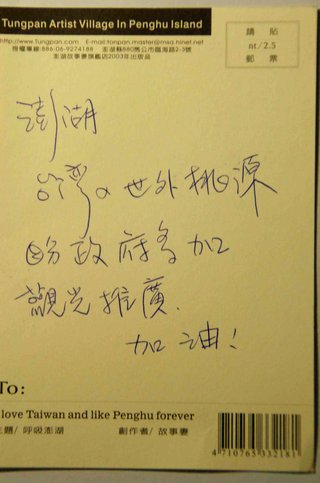 Tungpan Artist Village In Penghu Island
http://www.Tungpan.com E-mail:tonpan.master@msa.hinet.net
授權專線:886-06-9274188 澎湖縣880馬公市臨海路2-5號
澎湖故事妻旗艦店2003年出版品
請貼
nt/2.5
郵票
澎湖
台灣の世外桃源
盼政府多加
觀光推廣.
加油!
To:
love Taiwan and like Penghu forever
主題/ 呼吸澎湖 創作者/ 故事妻
4710765332181